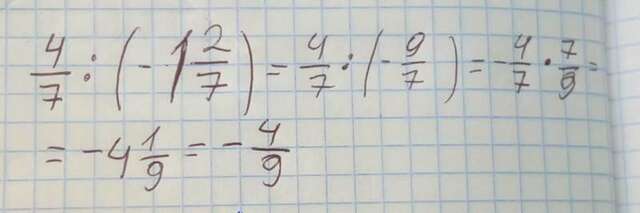 4/7 : (-1 2/7) = 4/7 : (-9/7) = -4/7 · 7/9 =
= -4 1/9 = -4/9